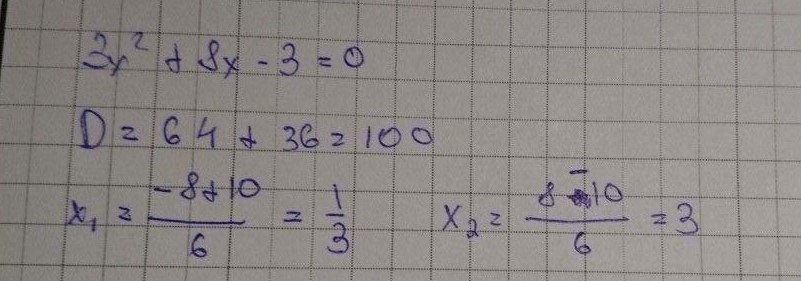 3x² + 8x - 3 = 0
D = 64 + 36 = 100
x₁ = (-8+10)/6 = 1/3 x₂ = (8-10)/6 = 3